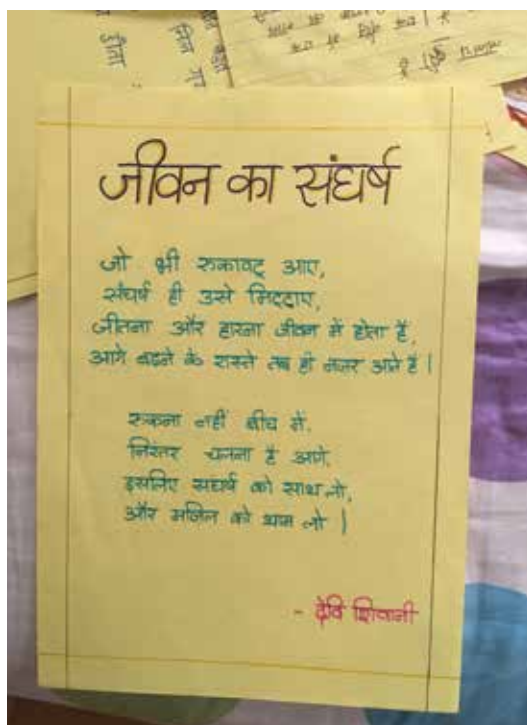 जीवन का संघर्ष
जो भी रुकावट आए,
संघर्ष ही उसे मिटाए,
जीतना और हारना जीवन में होता है,
आगे बढ़ने के रास्ते तब ही नजर आते है।
रुकना नहीं बीच में,
निरंतर चलना है आगे,
इसलिए संघर्ष को साथ लो,
और मंजिल को थाम लो।
- देवि शिवानी